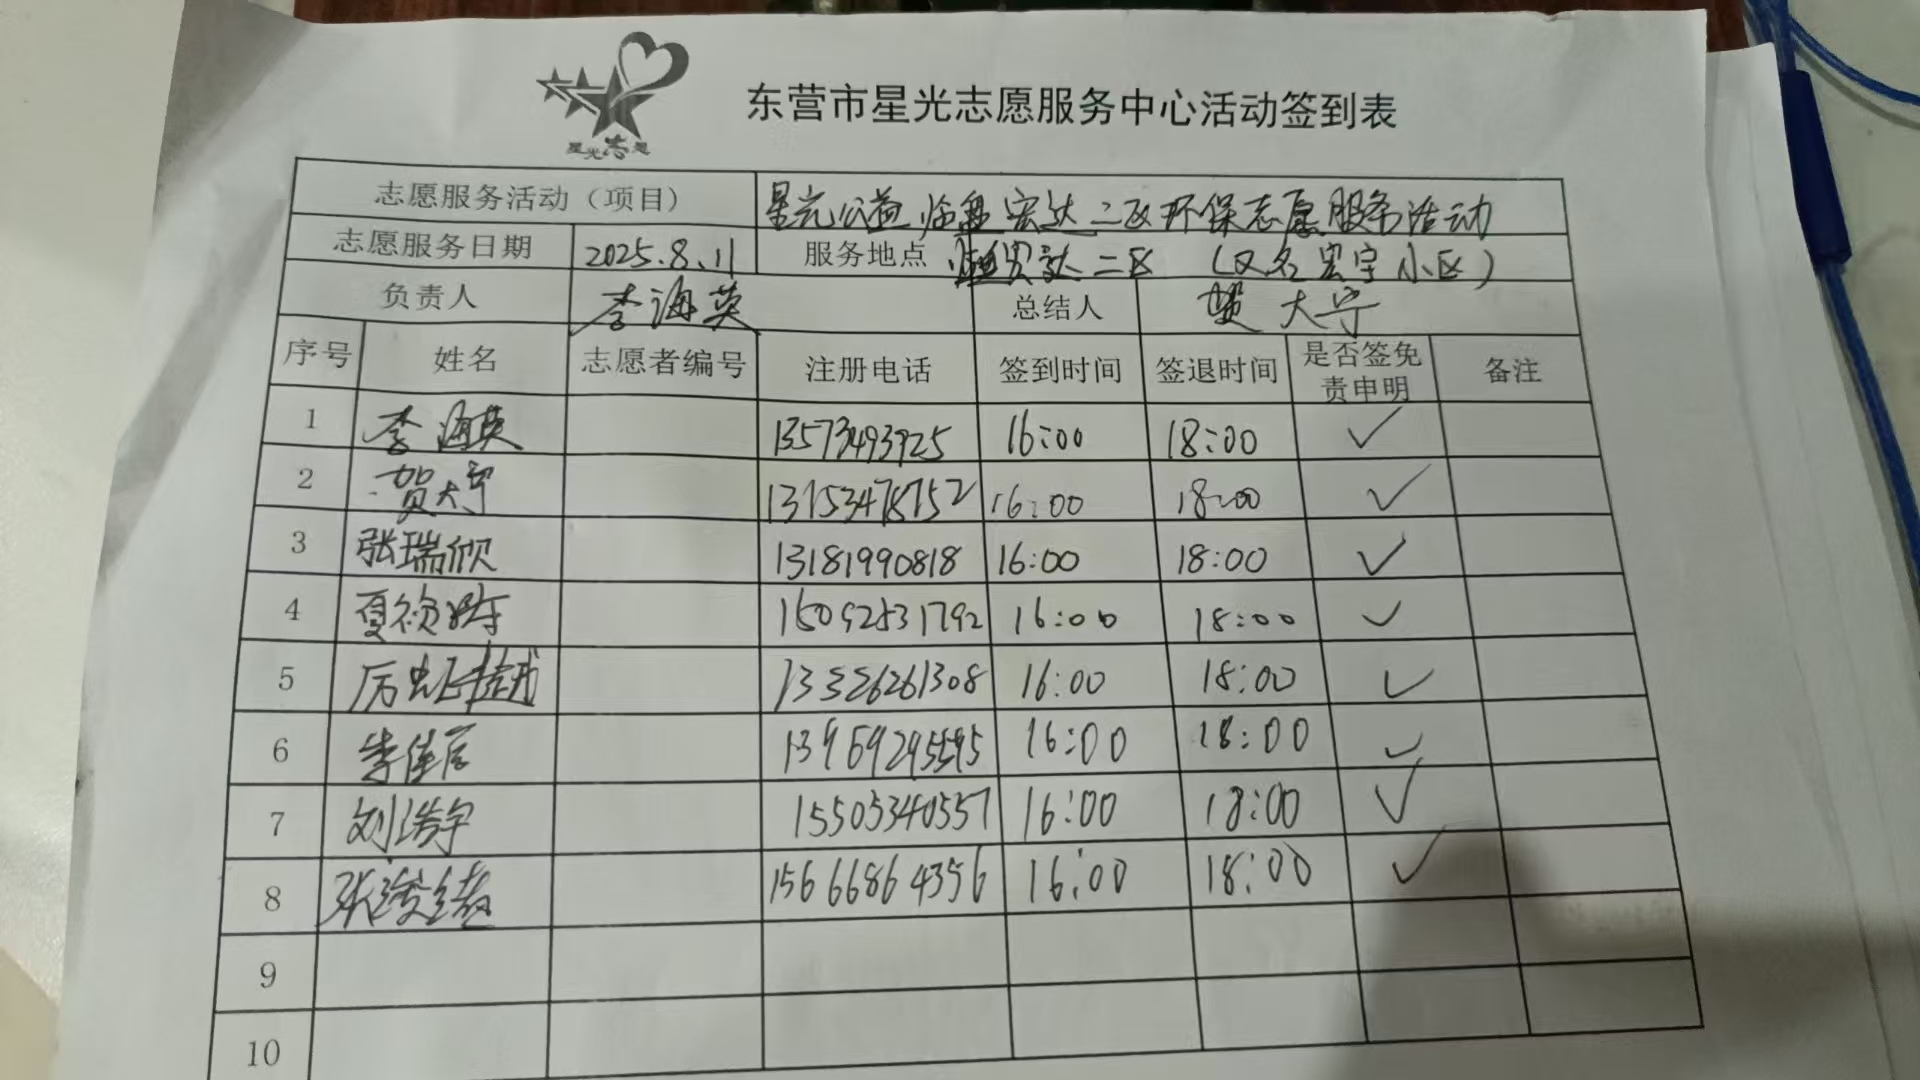 星光志愿
东营市星光志愿服务中心活动签到表
志愿服务活动（项目） 星光公益临盘宏达二区环保志愿服务活动
志愿服务日期 2025.8.11 服务地点 临盘宏达二区 （又名宏宇小区）
负责人 李海英 总结人 贺大宁
序号 姓名 志愿者编号 注册电话 签到时间 签退时间 是否签免责申明 备注
1 李海英 13573493925 16:00 18:00 ✓
2 贺大宁 13153478752 16:00 18:00 ✓
3 张瑞欣 13181990818 16:00 18:00 ✓
4 15092531792 16:00 18:00 ✓
5 13326261308 16:00 18:00 ✓
6 李佳辰 13969295595 16:00 18:00 ✓
7 刘浩宇 15505340557 16:00 18:00 ✓
8 15666864356 16:00 18:00 ✓
9
10